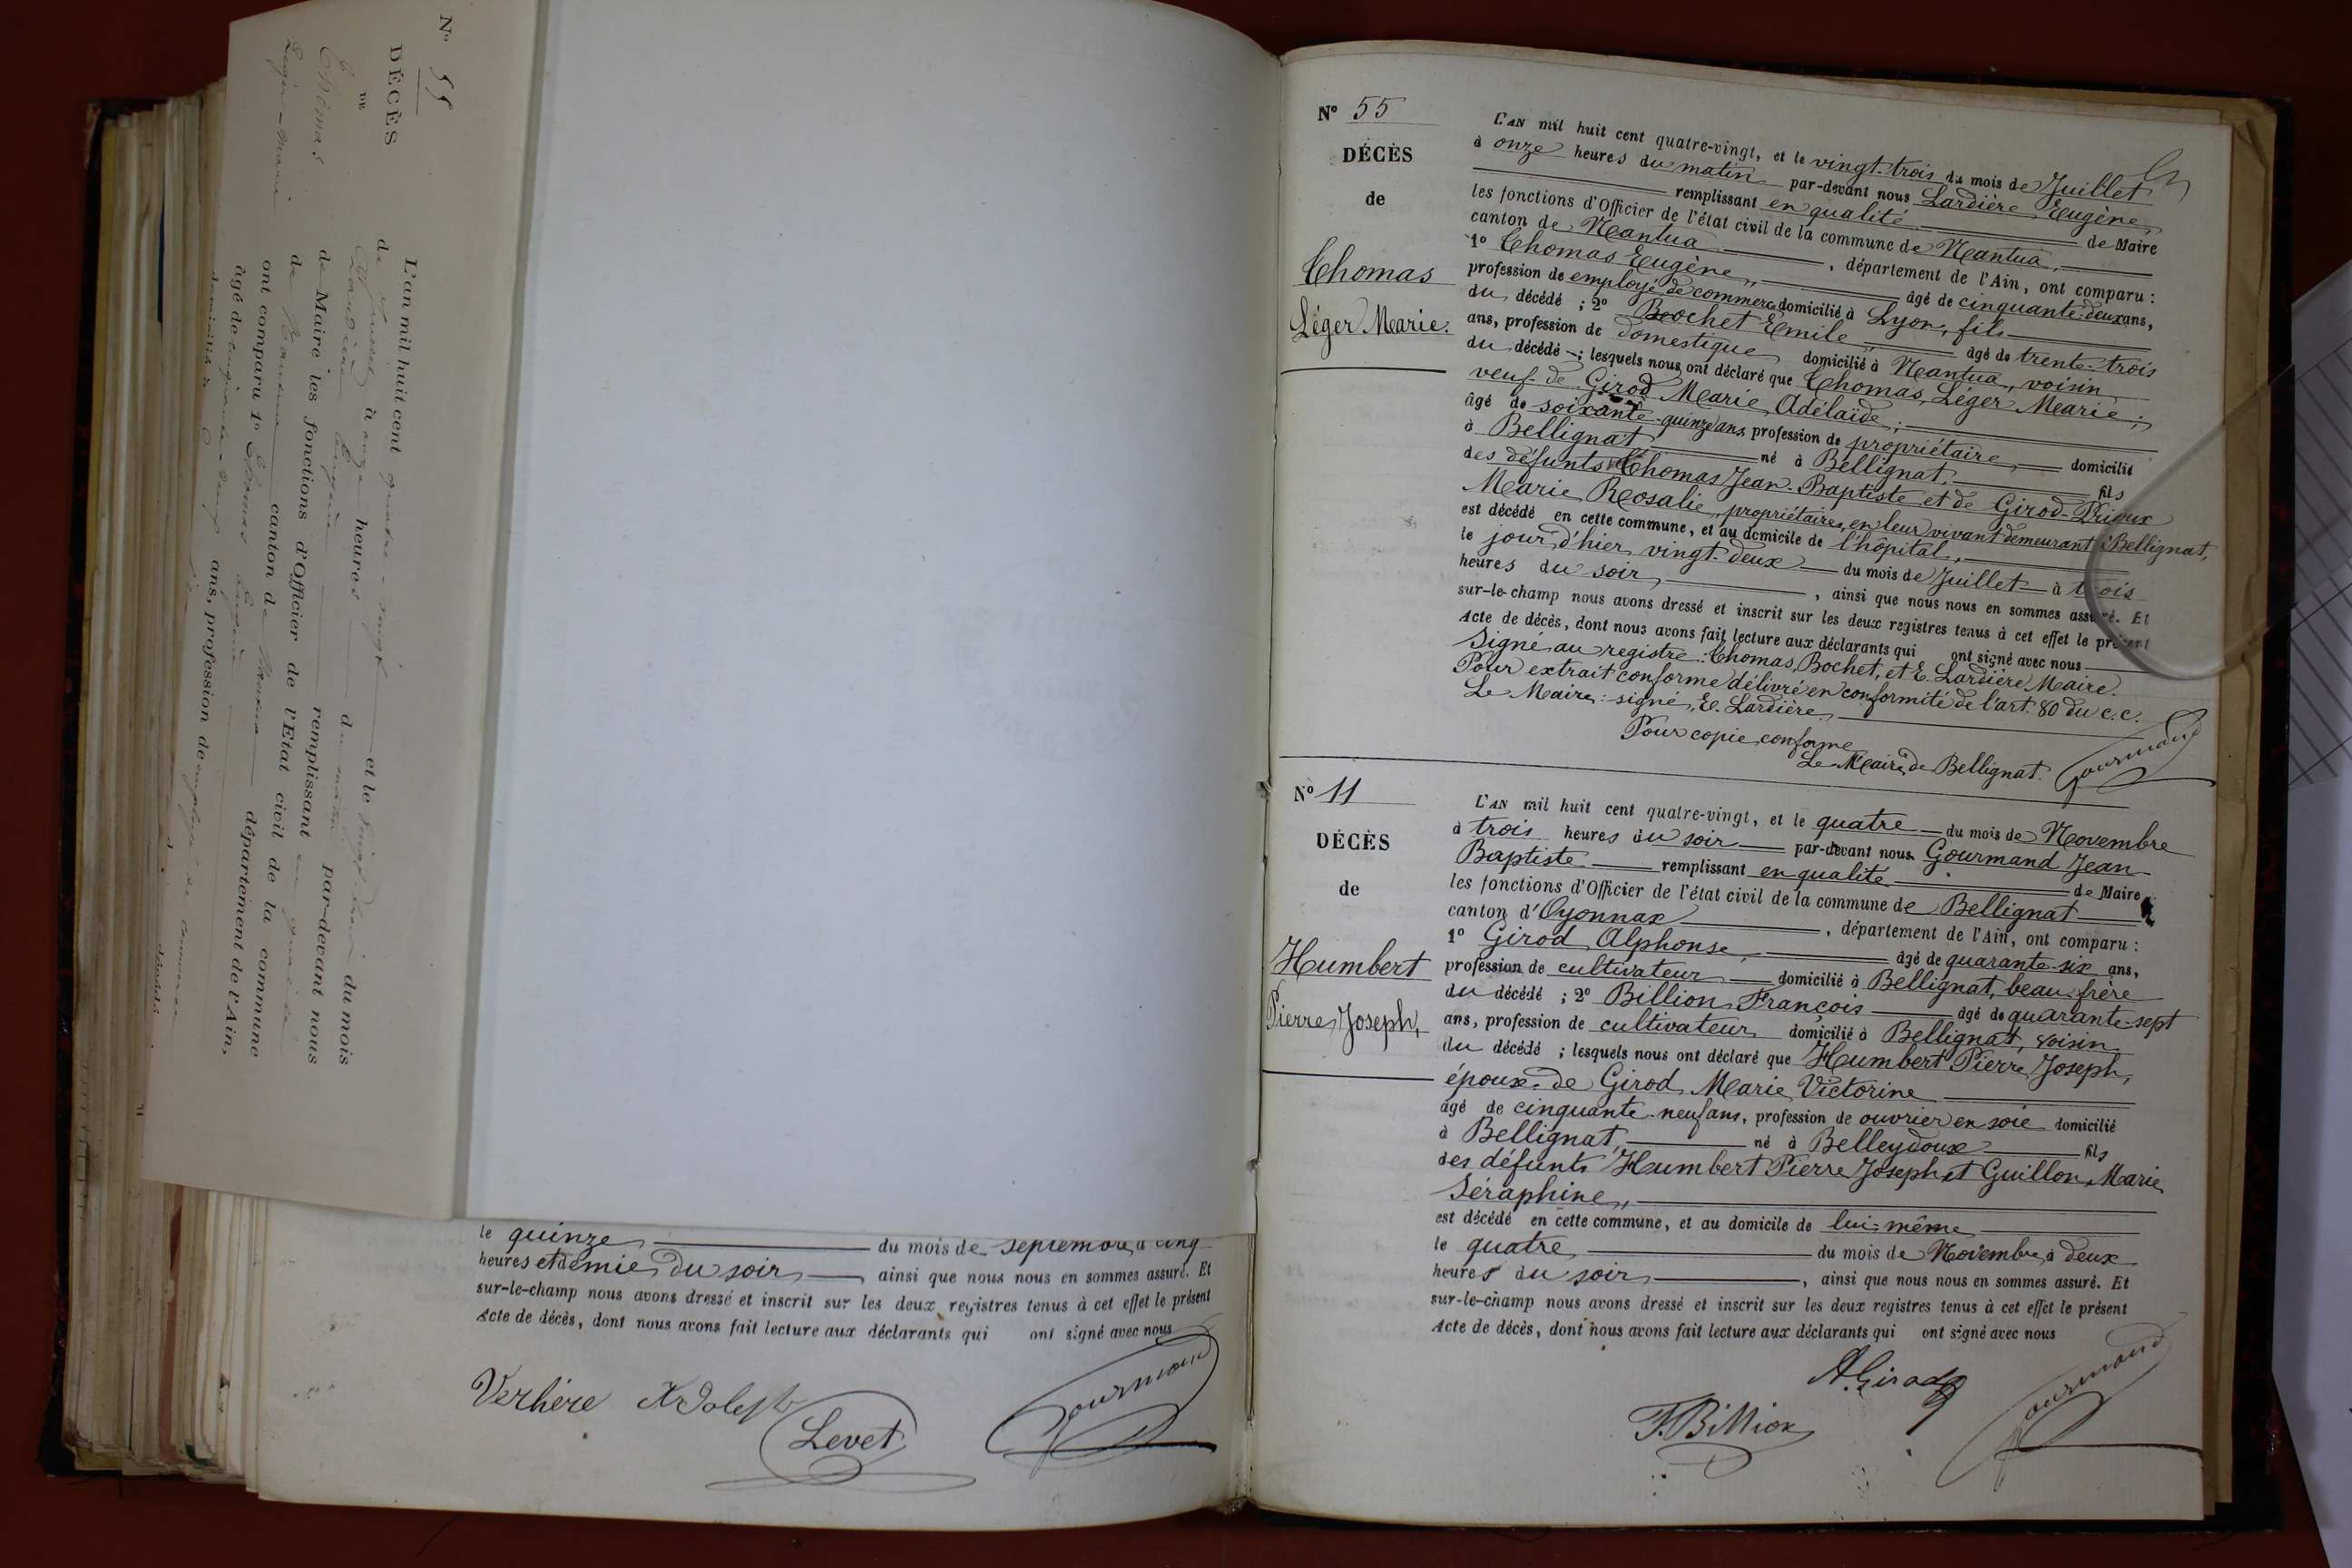 N° 55
DÉCÈS
DE
Thomas
Léger-Marie
L'an mil huit cent quatre-vingt et le vingt-trois du mois
de Juillet à onze heures du matin par-devant nous
Lardière Eugène remplissant en qualité
de Maire les fonctions d'Officier de l'Etat civil de la commune
de Nantua canton de Nantua département de l'Ain,
ont comparu 1° Thomas Eugène
âgé de cinquante-deux ans, profession de employé de commerce
domicilié à décédé
le quinze du mois de septembre à cinq
heures et demie du soir, ainsi que nous nous en sommes assuré. Et
sur-le-champ nous avons dressé et inscrit sur les deux registres tenus à cet effet le présent
Acte de décès, dont nous avons fait lecture aux déclarants qui ont signé avec nous
Verhère Adolph
Levet
Gourmand
N° 55
DÉCÈS
de
Thomas
Léger Marie.
L'AN mil huit cent quatre-vingt, et le vingt-trois du mois de Juillet
à onze heures du matin par-devant nous Lardière Eugène,
remplissant en qualité de Maire
les fonctions d'Officier de l'état civil de la commune de Nantua,
canton de Nantua, département de l'Ain, ont comparu :
1° Thomas Eugène, âgé de cinquante-deux ans,
profession de employé de commerce domicilié à Lyon, fils
du décédé ; 2° Bochet Emile, âgé de trente-trois
ans, profession de domestique domicilié à Nantua, voisin
du décédé ; lesquels nous ont déclaré que Thomas, Léger Marie,
veuf de Girod Marie Adélaïde,
âgé de soixante-quinze ans, profession de propriétaire, domicilié
à Bellignat né à Bellignat, fils
des défunts Thomas Jean-Baptiste et de Girod-Prioux
Marie Rosalie, propriétaires, en leur vivant demeurant à Bellignat,
est décédé en cette commune, et au domicile de l'hôpital,
le jour d'hier vingt-deux du mois de Juillet à trois
heures du soir, ainsi que nous nous en sommes assuré. Et
sur-le-champ nous avons dressé et inscrit sur les deux registres tenus à cet effet le présent
Acte de décès, dont nous avons fait lecture aux déclarants qui ont signé avec nous
Signé au registre : Thomas, Bochet, et E. Lardière Maire.
Pour extrait conforme délivré en conformité de l'art. 80 du c.c.
Le Maire : signé, E. Lardière.
Pour copie conforme
Le Maire de Bellignat.
Gourmand
N° 11
DÉCÈS
de
Humbert
Pierre Joseph,
L'AN mil huit cent quatre-vingt, et le quatre du mois de Novembre
à trois heures du soir par-devant nous Gourmand Jean
Baptiste remplissant en qualité de Maire
les fonctions d'Officier de l'état civil de la commune de Bellignat
canton d'Oyonnax, département de l'Ain, ont comparu :
1° Girod Alphonse, âgé de quarante-six ans,
profession de cultivateur domicilié à Bellignat, beau frère
du décédé ; 2° Billion François âgé de quarante-sept
ans, profession de cultivateur domicilié à Bellignat, voisin
du décédé ; lesquels nous ont déclaré que Humbert Pierre Joseph,
époux de Girod Marie Victorine
âgé de cinquante-neuf ans, profession de ouvrier en soie domicilié
à Bellignat, né à Belleydoux fils
des défunts Humbert Pierre Joseph et Guillon Marie
Séraphine,,
est décédé en cette commune, et au domicile de lui-même
le quatre du mois de Novembre à deux
heures du soir, ainsi que nous nous en sommes assuré. Et
sur-le-champ nous avons dressé et inscrit sur les deux registres tenus à cet effet le présent
Acte de décès, dont nous avons fait lecture aux déclarants qui ont signé avec nous
A. Girod
F. Billion
Gourmand